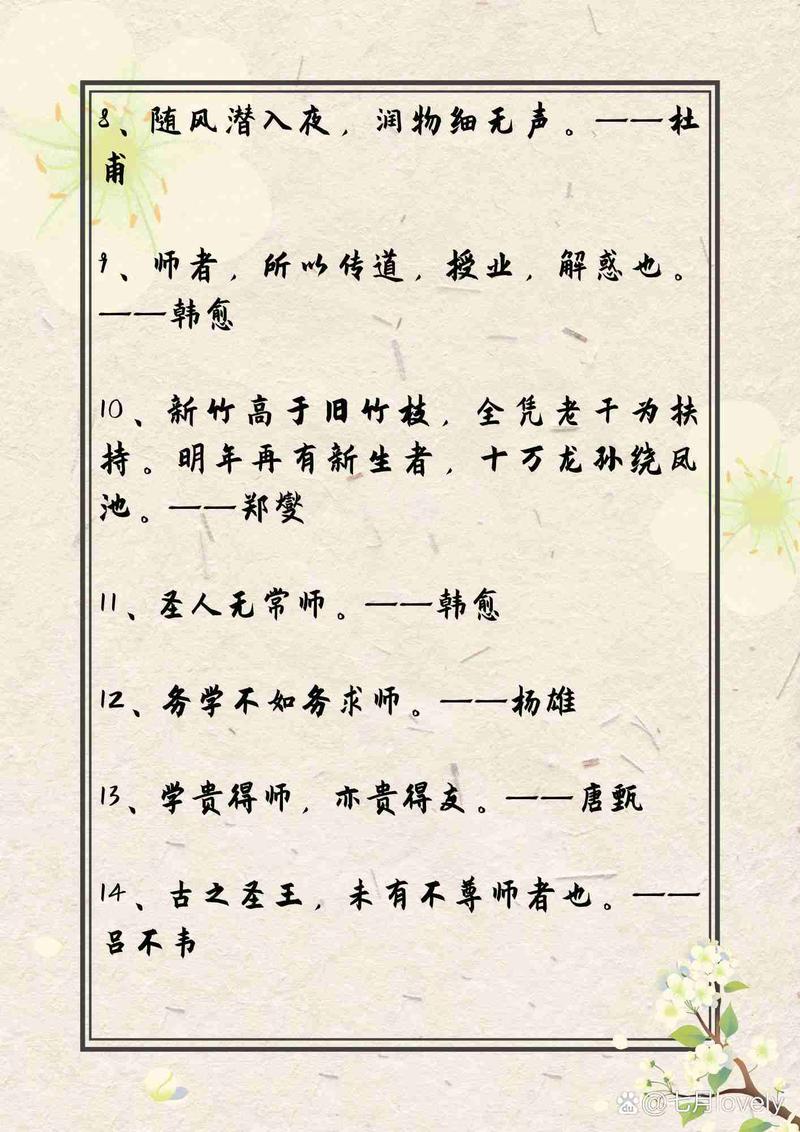 8、随风潜入夜，润物细无声。——杜
甫
9、师者，所以传道，授业，解惑也。
——韩愈
10、新竹高于旧竹枝，全凭老干为扶
持。明年再有新生者，十万龙孙绕凤
池。——郑燮
11、圣人无常师。——韩愈
12、务学不如务求师。——杨雄
13、学贵得师，亦贵得友。——唐甄
14、古之圣王，未有不尊师者也。——
吕不韦
du @七月lovely